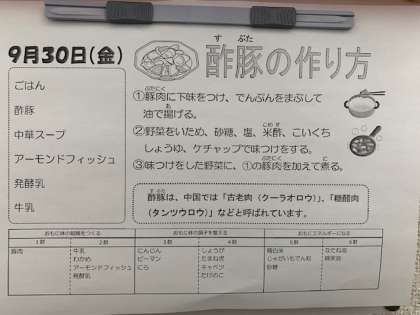 9月30日(金)
ごはん
酢豚
中華スープ
アーモンドフィッシュ
発酵乳
牛乳
す ぶた
酢豚の作り方
ぶたにく
①豚肉に下味をつけ、でんぷんをまぶして
あ
油で揚げる。
こめず
②野菜をいため、砂糖、塩、米酢、こいくち
しょうゆ、ケチャップで味つけをする。
ぶたにく に
③味つけをした野菜に、①の豚肉を加えて煮る。
すぶた
酢豚は、中国では「古老肉（クーラオロウ）」、「糖醋肉
（タンツウロウ）」などと呼ばれています。
おもに体の組織をつくる おもに体の調子を整える おもにエネルギーになる
1群 2群 3群 4群 5群 6群
豚肉 牛乳 にんじん しょうが 精白米 なたね油
わかめ ピーマン たまねぎ じゃがいもでん粉
アーモンドフィッシュ にら キャベツ 砂糖
発酵乳 たけのこ